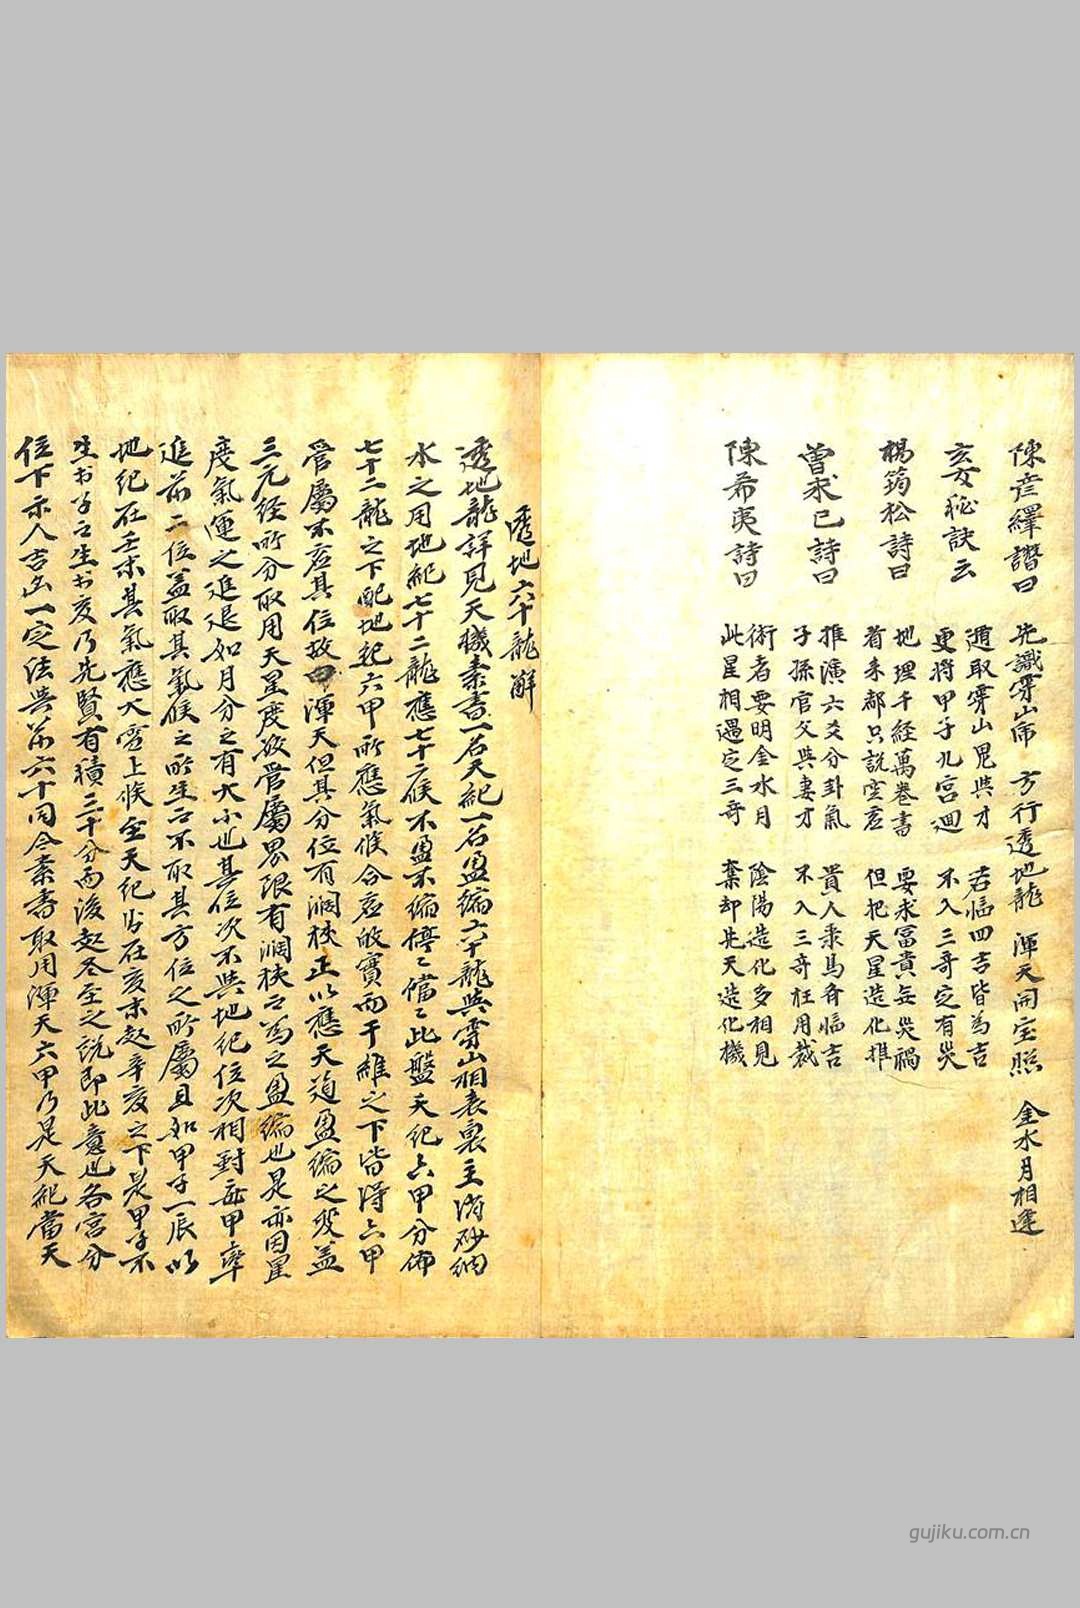 陳彦繹譖曰 先識穿山席 方行透地龍 渾天開宝照 金水月相逢
玄女秘訣云
遁取穿山鬼与才 若臨四吉皆為吉
更將甲子九宮迴 不入三奇定有災
楊筠松詩曰
地理千経萬卷書 要求冨貴每災禍
看来都只說空虚 但把天星造化推
曽求已詩曰
推演六爻分卦氣 貴人乘馬斉臨吉
子孫官父與妻才 不入三奇枉用裁
陳希夷詩曰
術者要明金水月 陰陽造化多相見
此星相遇定三奇 棄却先天造化機
透地六十龍解
透地龍詳見天機素書一名天紀一名盈縮六十龍与穿山相表裏主消砂納
水之用地紀七十二龍應七十二候不盈不縮停々儅々此盤天紀六甲分佈
七十二龍之下配地起六甲所應氣候合虚故實而干維之下皆得六甲
管屬不虚其位故曰渾天但其分位有濶狹正以應天道盈縮之變盖
三元経所分取用天星度故管屬界限有濶狹名為之盈縮也是亦因星
度氣運之進退如月分之有大小也其位次不与地紀位次相對每甲率
進前二位盖取其氣候之所生而不取其方位之所屬且如甲子一辰以
地紀在壬末其氣應大雪上候至天紀則在亥末起辛亥之下是甲子不
生於子而生於亥乃先賢有積三十分而後起冬至之說即此意也各宮分
位下示人吉凶一定法与前六十同今素書取用渾天六甲乃是天紀當天
gujiku.com.cn